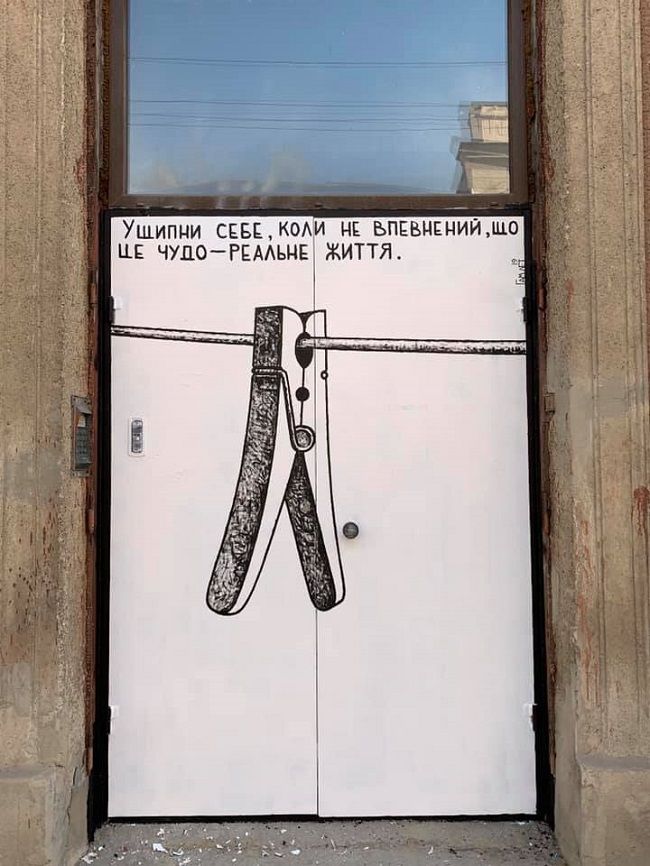 УЩИПНИ СЕБЕ, КОЛИ НЕ ВПЕВНЕНИЙ, ЩО
ЦЕ ЧУДО—РЕАЛЬНЕ ЖИТТЯ.